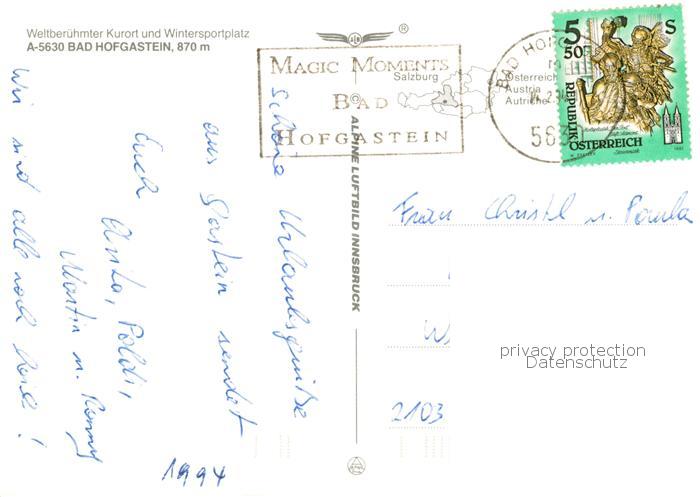 Weltberühmter Kurort und Wintersportplatz
A-5630 BAD HOFGASTEIN, 870 m
®
MAGIC MOMENTS
BAD
HOFGASTEIN
Salzburg
Österreich
Austria
Autriche
BAD HO
563
5 50 S
REPUBLIK ÖSTERREICH
© ALPINE LUFTBILD INNSBRUCK
Schöne Urlaubsgrüße
aus Gastein sendet
Euch
Anita, Poldi,
Martin u. Romy
Wir sind alle noch heil!
1994
Frau Christl u. Paula
W
2103
privacy protection
Datenschutz